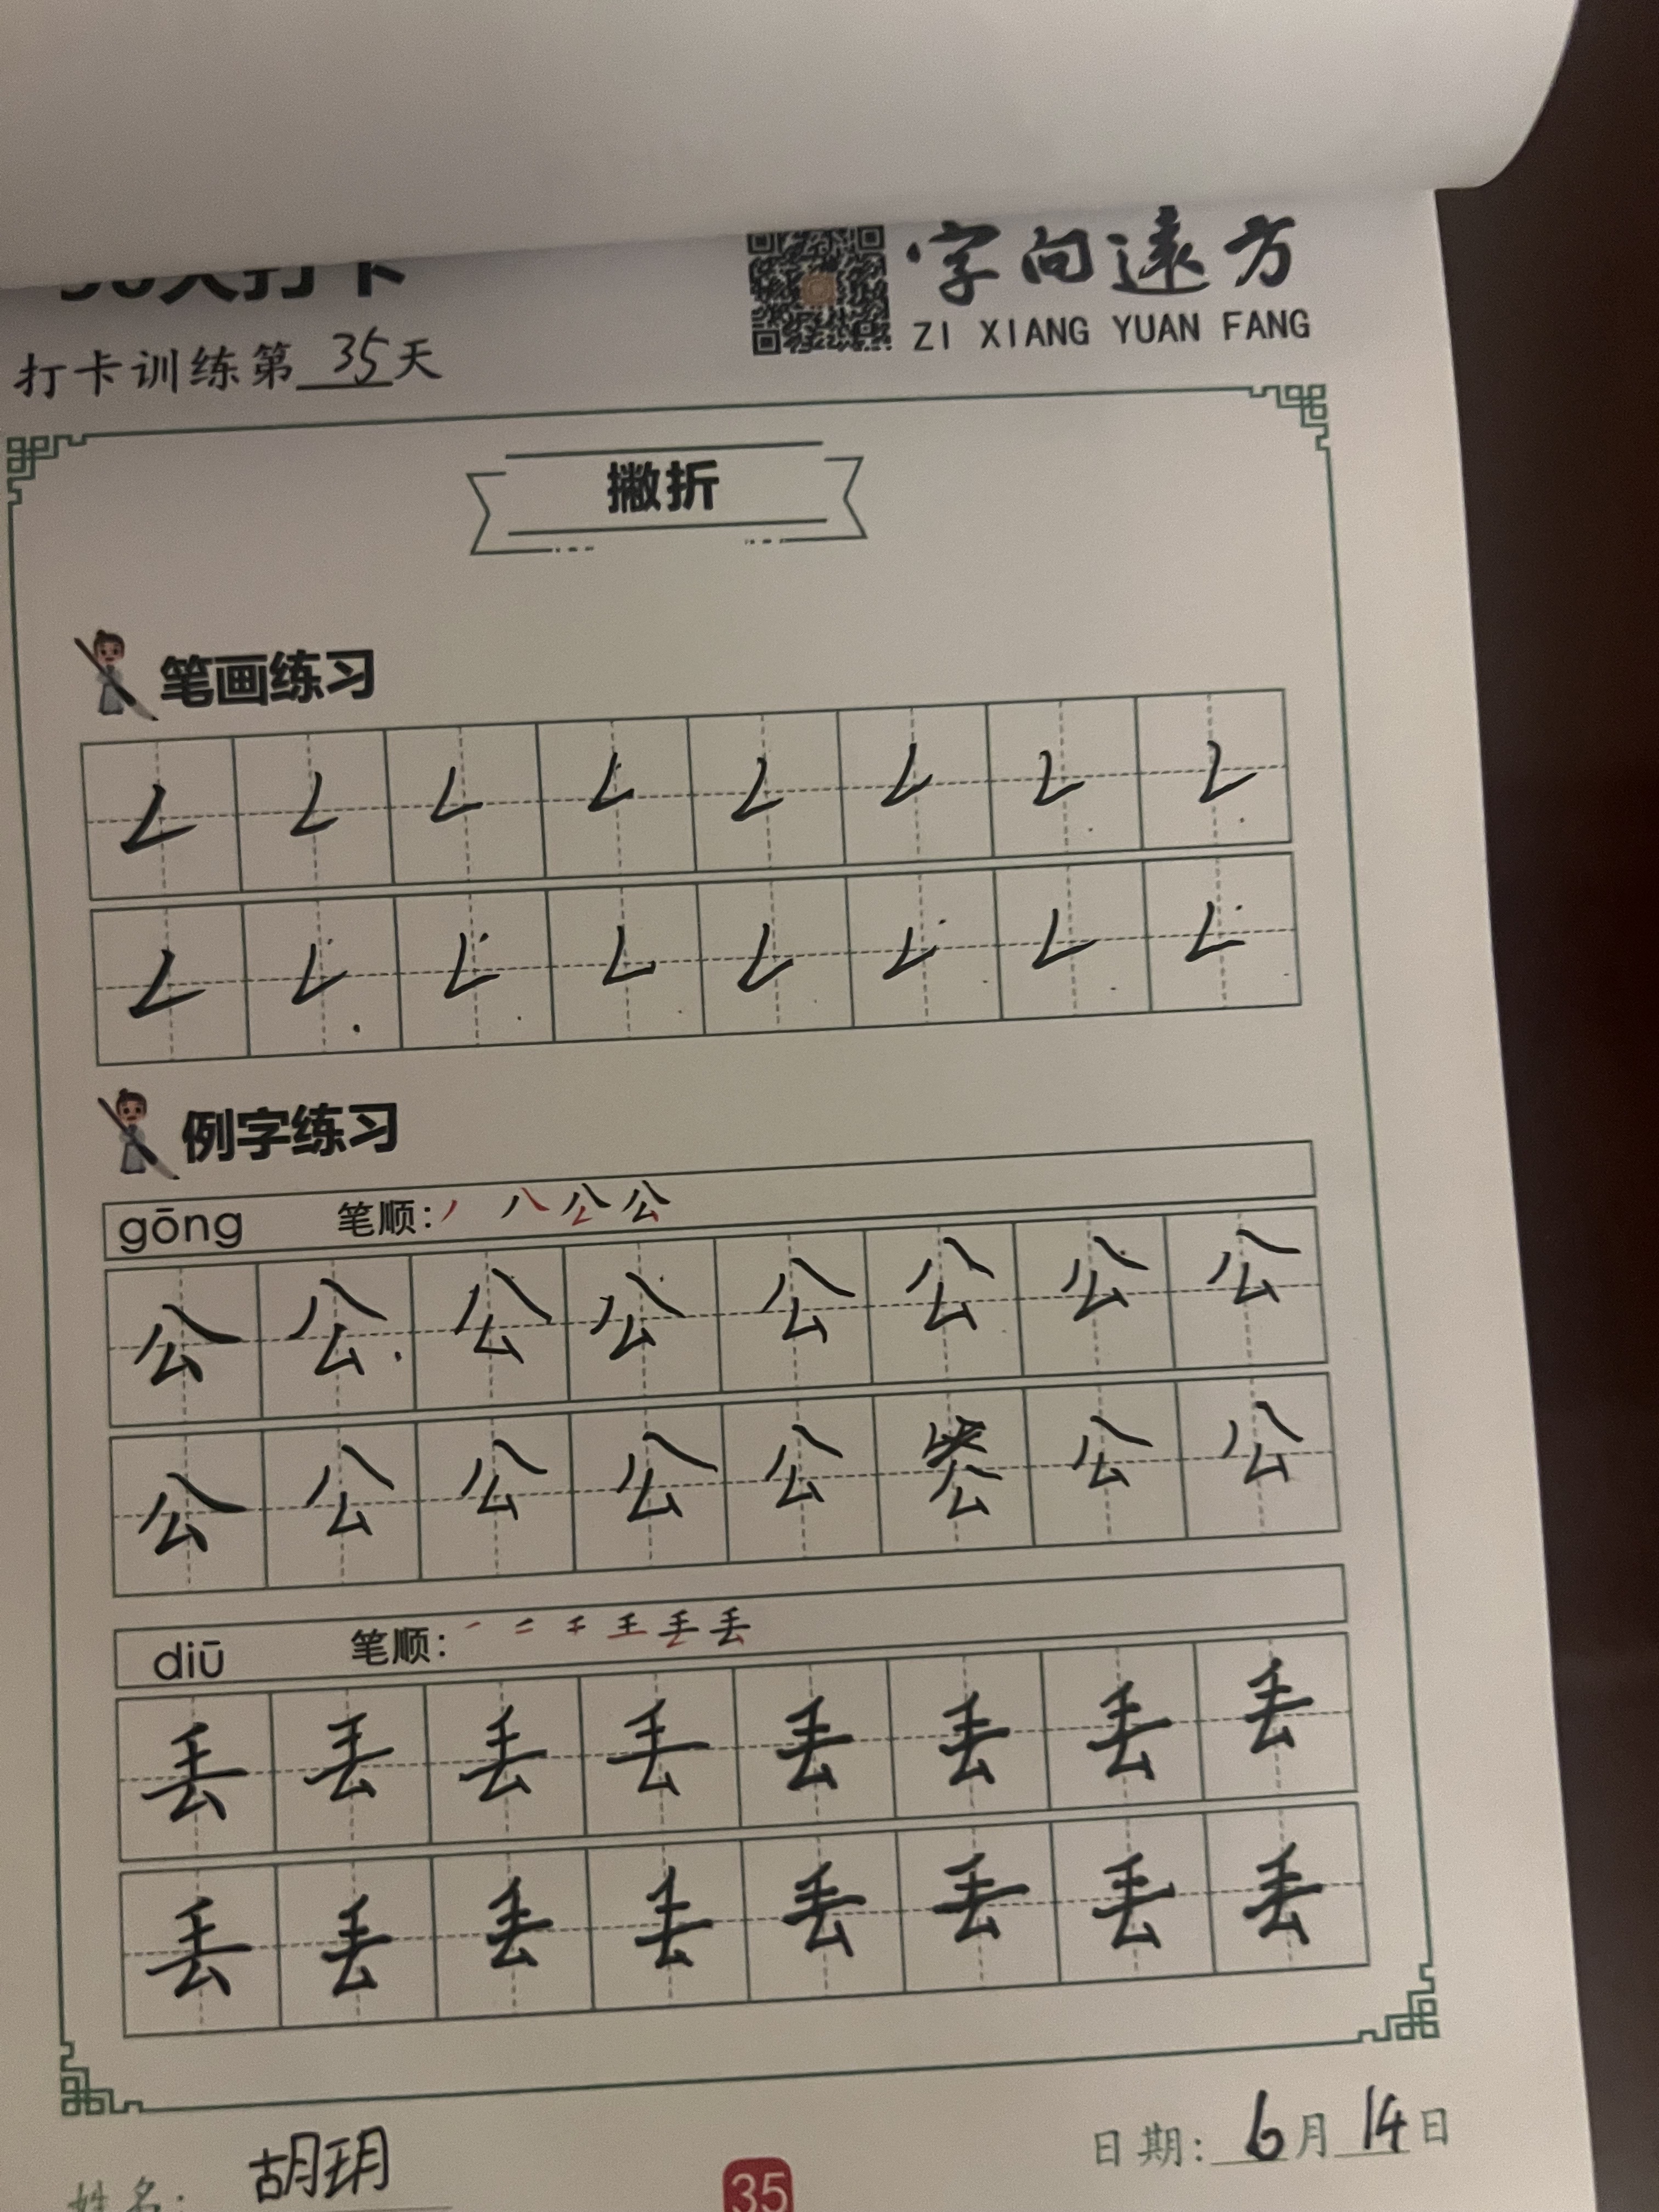 字向远方
ZI XIANG YUAN FANG
打卡训练第35天
撇折
笔画练习
例字练习
gōng 笔顺：丿 八 公 公
公 公 公 公 公 公 公 公
公 公 公 公 公 公 公 公
diū 笔顺：
丢 丢 丢 丢 丢 丢 丢 丢
丢 丢 丢 丢 丢 丢 丢 丢
姓名：胡玥
日期：6月14日
35